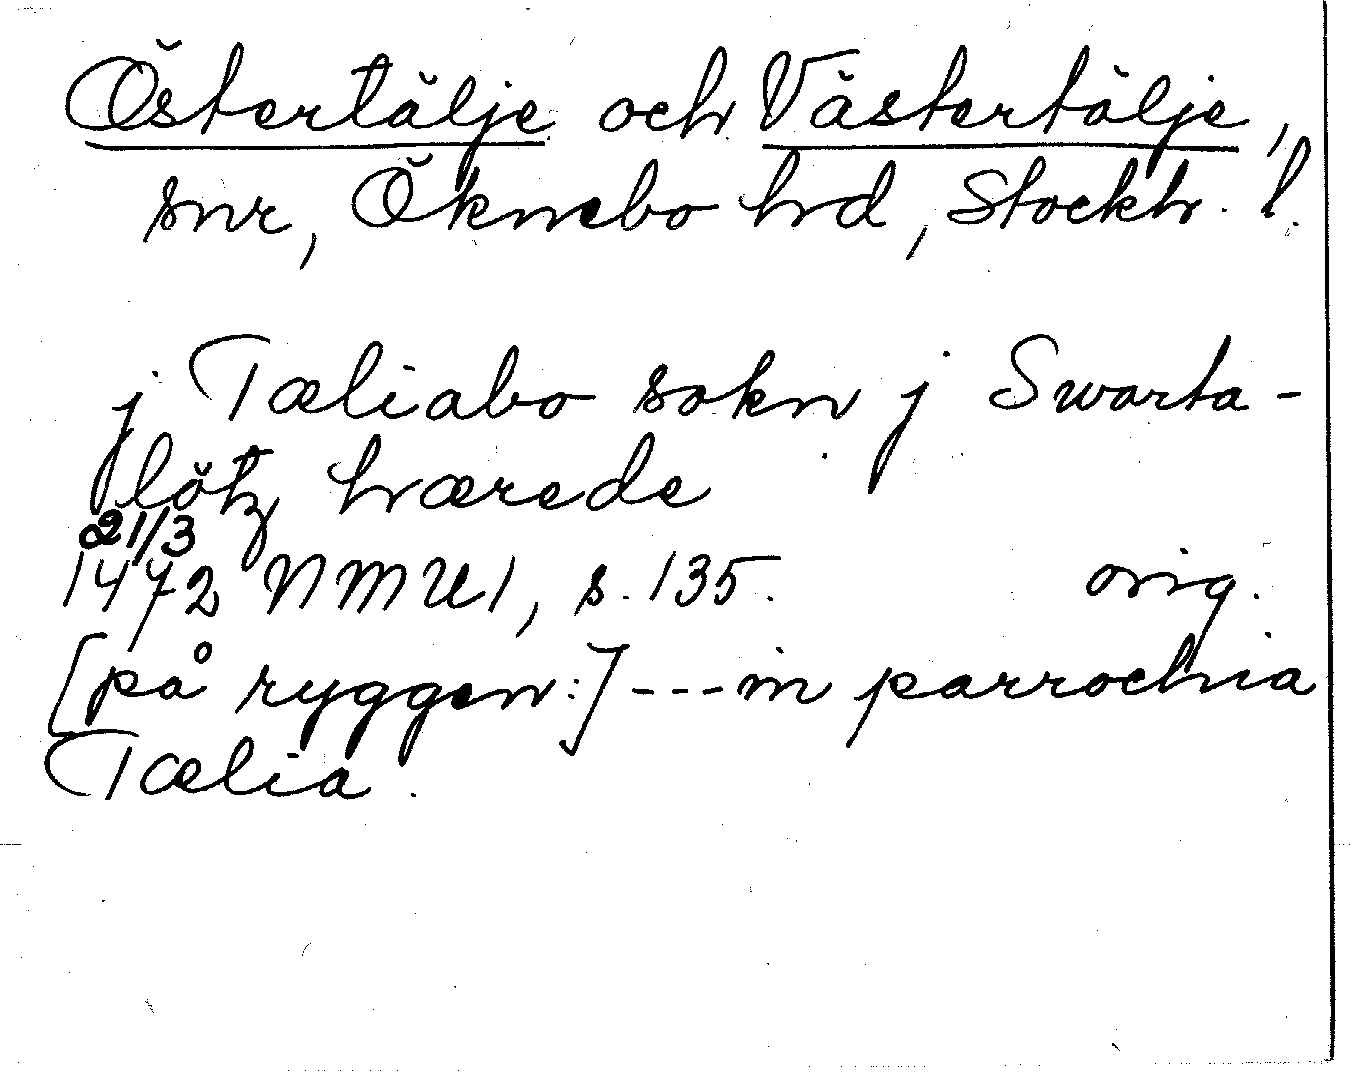 Östertälje och Västertälje,
snr, Öknebo hrd, Stockh. l.
j Tæliabo sokn j Swarta-
lötz hærede
21/3
1472 NMU1, s. 135. orig.
[på ryggen:] --- in parrochia
Tælia.